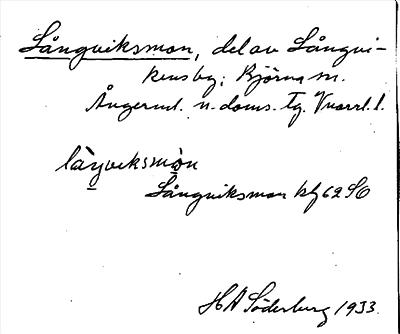 Långviksmon, del av Långvi-
kens by; Björna sn.
Ångerml. n. doms. Tg. Vnorrl. l.
långviksmon
Långviksmon kbl 62 SO
H A Söderberg 1933.